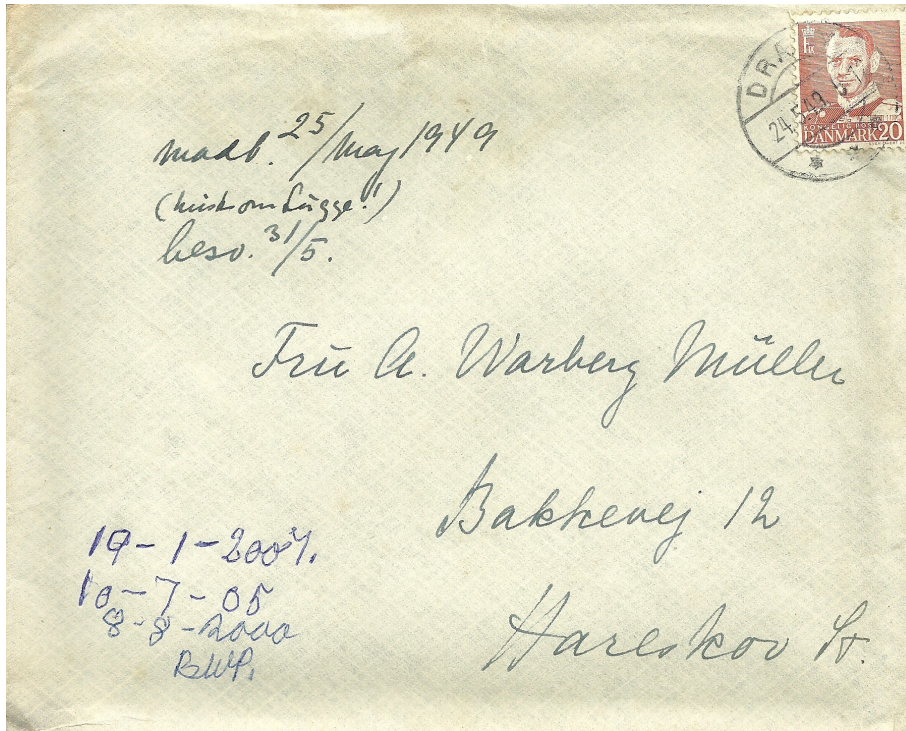 DRA
24.5.49.
KONGELIG POST
DANMARK 20
modt. 25/Maj 1949
(husk om Lugge!)
besv. 31/5.
Fru A. Warberg Müller
Bakkevej 12
Hareskov St.
19-1-2007.
10-7-05
8-8-2000
BWP.